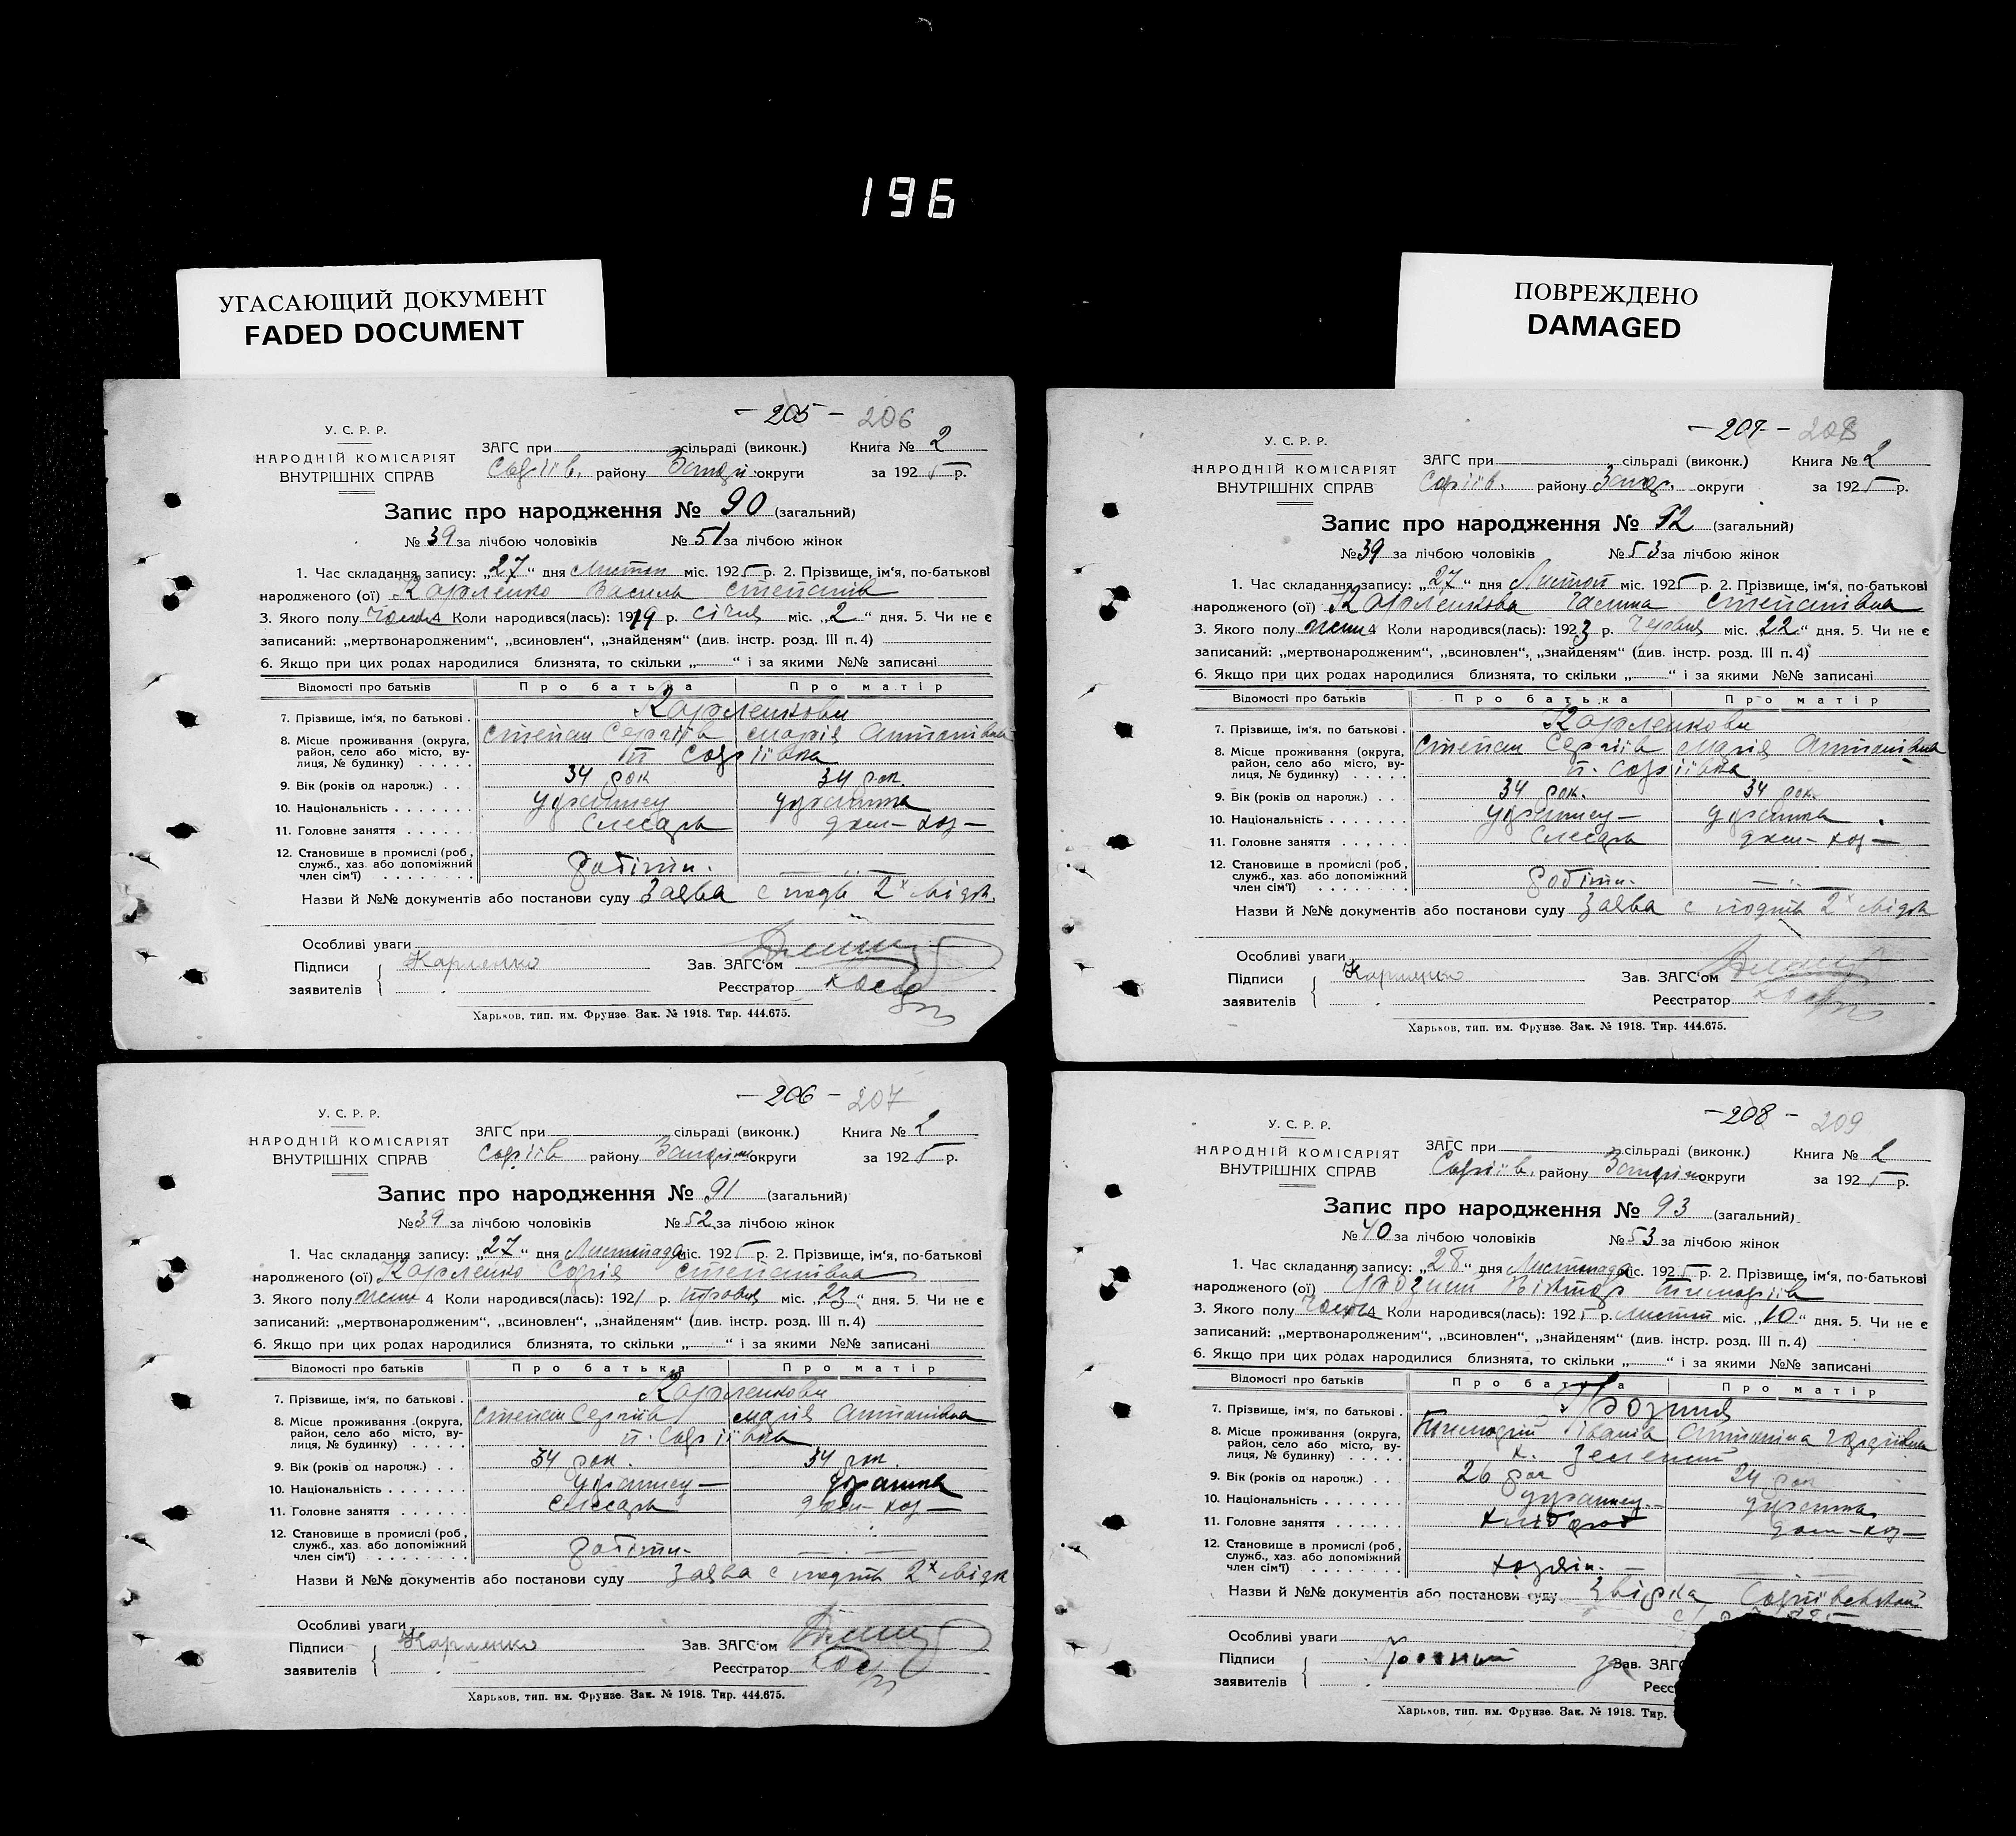 196
УГАСАЮЩИЙ ДОКУМЕНТ
FADED DOCUMENT
ПОВРЕЖДЕНО
DAMAGED
— 205 — 206
У. С. Р. Р.
НАРОДНІЙ КОМІСАРІЯТ
ВНУТРІШНІХ СПРАВ
ЗАГС при сільраді (виконк.) Книга № 2
Софіїв. району округи за 1925 р.
Запис про народження № 90 (загальний)
№ 39 за лічбою чоловіків № 51 за лічбою жінок
1. Час складання запису: „27“ дня Листоп міс. 1925 р. 2. Прізвище, ім'я, по-батькові
народженого (ої) Карленко Василь Степанів
3. Якого полу 4 Коли народився(лась): 1919 р. Січня міс. „2“ дня. 5. Чи не є
записаний: „мертвонародженим“, „всиновлен“, „знайденям“ (див. інстр. розд. III п. 4)
6. Якщо при цих родах народилися близнята, то скільки „ “ і за якими №№ записані
Відомості про батьків Про батька Про матір
7. Прізвище, ім'я, по батькові . Карленкови
Степан Сергіїв Марія Антонівна
8. Місце проживання (округа, район, село або місто, вулиця, № будинку) . . . . . Софіївка
9. Вік (років од народж.) . . 34 рок 34 рок.
10. Національність . . . . . . . Українец Українка
11. Головне заняття . . . . . . Слесарь дом-хоз—
12. Становище в промислі (роб., служб., хаз. або допоміжний член сім'ї) . . . . . . . . робітн. — .. —
Назви й №№ документів або постанови суду Заява с 2х свідк.
Особливі уваги
Підписи заявителів Карленко Зав. ЗАГС'ом
Реєстратор
Харьков, тип. им. Фрунзе. Зак. № 1918. Тир. 444.675.
— 206 — 207
У. С. Р. Р.
НАРОДНІЙ КОМІСАРІЯТ
ВНУТРІШНІХ СПРАВ
ЗАГС при сільраді (виконк.) Книга № 2
Софіїв району округи за 1925 р.
Запис про народження № 91 (загальний)
№ 39 за лічбою чоловіків № 52 за лічбою жінок
1. Час складання запису: „27“ дня Листопада міс. 1925 р. 2. Прізвище, ім'я, по-батькові
народженого (ої) Карленко Софія Степанівна
3. Якого полу жен 4 Коли народився(лась): 1921 р. міс. „23“ дня. 5. Чи не є
записаний: „мертвонародженим“, „всиновлен“, „знайденям“ (див. інстр. розд. III п. 4)
6. Якщо при цих родах народилися близнята, то скільки „ “ і за якими №№ записані
Відомості про батьків Про батька Про матір
7. Прізвище, ім'я, по батькові . Карленкови
Степан Сергіїв Марія Антонівна
8. Місце проживання (округа, район, село або місто, вулиця, № будинку) . . . . . п. Софіївка
9. Вік (років од народж.) . . 34 рок. 34 рок.
10. Національність . . . . . . . Українец— Українка
11. Головне заняття . . . . . . Слесарь дом-хоз—
12. Становище в промислі (роб., служб., хаз. або допоміжний член сім'ї) . . . . . . . . робітн- — . —
Назви й №№ документів або постанови суду Заява с 2х свідк
Особливі уваги
Підписи заявителів Карленко Зав. ЗАГС'ом
Реєстратор
Харьков, тип. им. Фрунзе. Зак. № 1918. Тир. 444.675.
— 207 — 208
У. С. Р. Р.
НАРОДНІЙ КОМІСАРІЯТ
ВНУТРІШНІХ СПРАВ
ЗАГС при сільраді (виконк.) Книга № 2
Софіїв. району округи за 1925 р.
Запис про народження № 92 (загальний)
№ 39 за лічбою чоловіків № 53 за лічбою жінок
1. Час складання запису: „27“ дня Листоп міс. 1925 р. 2. Прізвище, ім'я, по-батькові
народженого (ої) Карленкова Галина Степанівна
3. Якого полу жен 4 Коли народився(лась): 1923 р. Червня міс. 22“ дня. 5. Чи не є
записаний: „мертвонародженим“, „всиновлен“, „знайденям“ (див. інстр. розд. III п. 4)
6. Якщо при цих родах народилися близнята, то скільки „ “ і за якими №№ записані
Відомості про батьків Про батька Про матір
7. Прізвище, ім'я, по батькові . Карленкови
Степан Сергіїв Марія Антонівна
8. Місце проживання (округа, район, село або місто, вулиця, № будинку) . . . . . п. Софіївка
9. Вік (років од народж.) . . 34 рок. 34 рок.
10. Національність . . . . . . . Українец— Українка
11. Головне заняття . . . . . . Слесарь дом-хоз—
12. Становище в промислі (роб., служб., хаз. або допоміжний член сім'ї) . . . . . . . . робітн. — .. —
Назви й №№ документів або постанови суду Заява с 2х свідк
Особливі уваги
Підписи заявителів Карленко Зав. ЗАГС'ом
Реєстратор
Харьков, тип. им. Фрунзе. Зак. № 1918. Тир. 444.675.
— 208 — 209
У. С. Р. Р.
НАРОДНІЙ КОМІСАРІЯТ
ВНУТРІШНІХ СПРАВ
ЗАГС при сільраді (виконк.) Книга № 2
Софіїв. району округи за 1925 р.
Запис про народження № 93 (загальний)
№ 40 за лічбою чоловіків № 53 за лічбою жінок
1. Час складання запису: „28“ дня Листопада міс. 1925 р. 2. Прізвище, ім'я, по-батькові
народженого (ої) Віктор
3. Якого полу 4 Коли народився(лась): 1925 р. листоп міс. „10“ дня. 5. Чи не є
записаний: „мертвонародженим“, „всиновлен“, „знайденям“ (див. інстр. розд. III п. 4)
6. Якщо при цих родах народилися близнята, то скільки „ “ і за якими №№ записані
Відомості про батьків Про батька Про матір
7. Прізвище, ім'я, по батькові .
Іванів Антоніна
8. Місце проживання (округа, район, село або місто, вулиця, № будинку) . . . . . х. Зелений
9. Вік (років од народж.) . . 26 рок 24 рок
10. Національність . . . . . . . Українец.— Українка
11. Головне заняття . . . . . . хлібороб дом-хоз—
12. Становище в промислі (роб., служб., хаз. або допоміжний член сім'ї) . . . . . . . . хозяін. —
Назви й №№ документів або постанови суду
Особливі уваги
Підписи заявителів Зав. ЗАГС
Реєс
Харьков, тип. им. Фрунзе. Зак. № 1918. Тир.